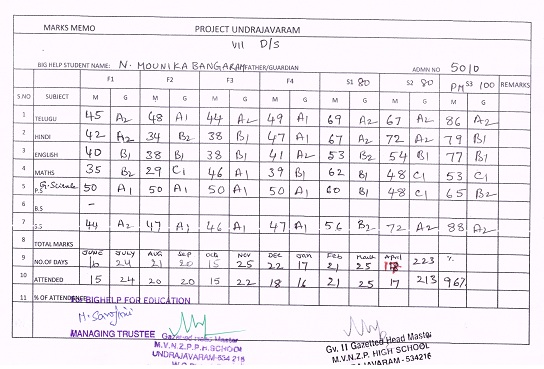 MARKS MEMO PROJECT UNDRAJAVARAM
VII D/S
BIG HELP STUDENT NAME: N. MOUNIKA BANGARAM FATHER/GUARDIAN ADMN NO 5010
F1 F2 F3 F4 S1 80 S2 80 PM S3 100 REMARKS
S.NO SUBJECT M G M G M G M G M G M G M G
1 TELUGU 45 A2 48 A1 44 A2 49 A1 69 A2 67 A2 86 A2
2 HINDI 42 A2 34 B2 38 B1 47 A1 67 A2 72 A2 79 B1
3 ENGLISH 40 B1 38 B1 38 B1 41 A2 53 B2 54 B1 77 B1
4 MATHS 35 B2 29 C1 46 A1 39 B1 62 B1 48 C1 53 C1
5 P.S G.Science 50 A1 50 A1 50 A1 50 A1 60 B1 48 C1 65 B2
6 B.S –
7 S.S 44 A2 47 A1 46 A1 47 A1 56 B2 72 A2 88 A2
8 TOTAL MARKS
JUNE JULY AUG SEP Oct NOV DEC Jan Feb March April
9 NO.OF DAYS 16 24 21 20 15 25 22 17 21 25 223 %
10 ATTENDED 15 24 20 20 15 22 18 16 21 25 17 213 96%
11 % OF ATTENDENCE
FOR BIGHELP FOR EDUCATION
M. Sarojini
MANAGING TRUSTEE Gazetted Head Master
M.V.N.Z.P.P.H.SCHOOL
UNDRAJAVARAM-534 216
Gv. II Gazetted Head Master
M.V.N.Z.P. HIGH SCHOOL
UNDRAJAVARAM - 534216